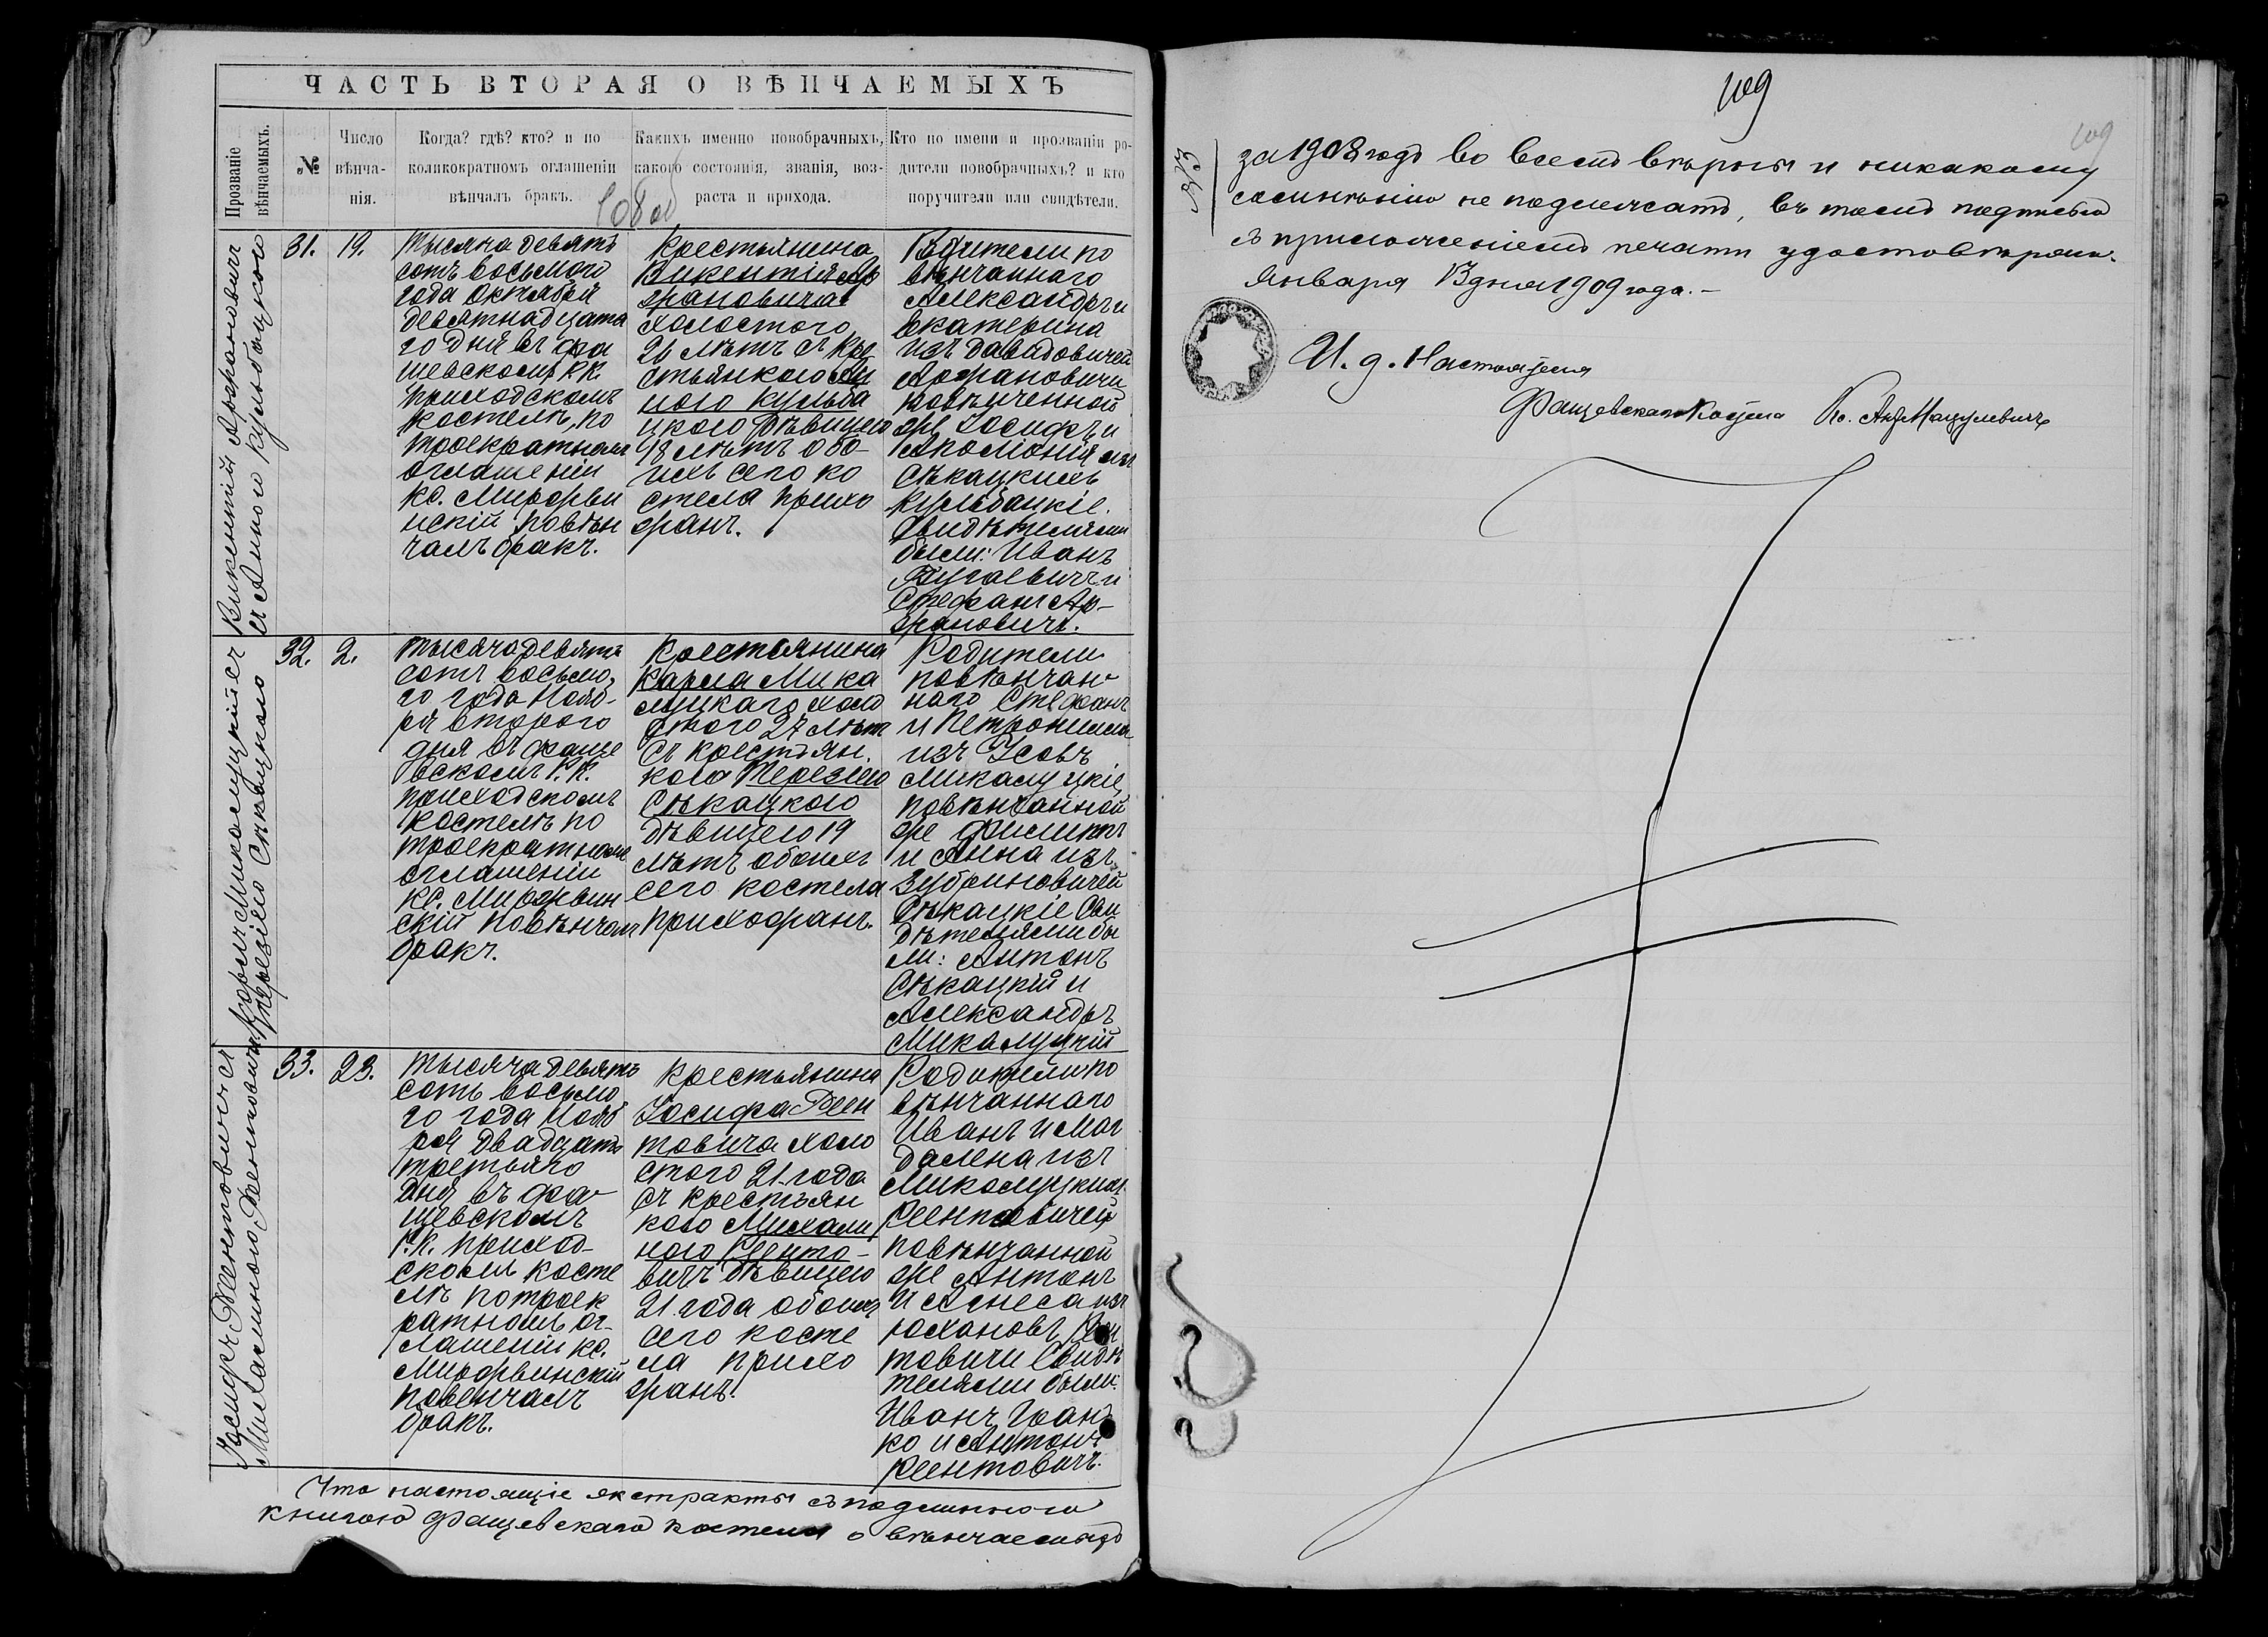 ЧАСТЬ ВТОРАЯ О ВѢНЧАЕМЫХЪ
Прозваніе
вѣнчаемыхъ.
№
Число
вѣнча-
нія.
Когда? гдѣ? кто? и по
коликократномъ оглашеніи
вѣнчалъ бракъ.
Какихъ именно новобрачныхъ,
какого состоянія, званія, воз-
раста и прихода.
Кто по имени и прозваніи ро-
дители новобрачныхъ? и кто
поручители или свидѣтели.
1908
Викентій
съ Анною Кульбацкою
31.
19.
Тысяча девять
сотъ восьмого
года Октября
девятнадцата
го дня въ Фа
щевскомъ Р.К.
приходскомъ
костелѣ, по
троекратномъ
оглашеніи
кс.
повѣн
чалъ бракъ.
Крестьянина
Викентія
холостого,
21 лѣтъ съ Кре
стьянкою Ан
ною Кульба
цкою дѣвицею
18 лѣтъ обо-
ихъ сего ко
стела прихо
жанъ.
Родители по
вѣнчаннаго
Александръ и
Екатерина
изъ Давидовичей
повѣнченной
же Іосифъ и
Аполіонія изъ
Сѣкацкихъ
Кульбацкіе.
Свидѣтелями
были: Иванъ
Стефанъ
Карлъ Микалуцкій съ
Терезіею Сѣкацкою
32.
2.
Тысяча девять
сотъ восьмо,
го года Нояб-
ря второго
дня въ Фаще
вскомъ Р.К.
приходскомъ
костелѣ по
троекратномъ
оглашеніи
кс.
скій повѣнчалъ
бракъ.
Крестьянина
Карла Мика
луцкаго холо
стого 27 лѣтъ
съ крестьян.
кою Терезею
Сѣкацкою
дѣвицею 19
лѣтъ обоихъ
сего костела
прихожанъ.
Родители
повѣнчан-
ного Стефанъ
и Петронимла
изъ Усовъ
Микалуцкіе,
повѣнчанной
же Филиппъ
и Анна изъ
Зубриновичей
Сѣкацкіе Сви
дѣтелями бы
ли: Антонъ
Сѣкацкій и
Александръ
Микалуцкій
33.
23.
Тысяча девять
сотъ восьмо
го года Нояб
ря двадцать
третьяго
дня въ Фа-
щевскомъ
Р.К. приход-
скомъ косте
лѣ по троек
ратномъ ог-
лашеніи кс.
повенчалъ
бракъ.
Крестьянина
Іосифа
товича холо
стого 21 года
съ крестьян
кою Михали
ною
вичъ дѣвицею
21 года обоихъ
сего косте
ла прихо
жанъ.
Родители по
вѣнчаннаго
Иванъ и Маг
далена изъ
Микалуцкихъ
повѣнчанной
же Антонъ
и Агнеса изъ
Юхановъ
товичи Свидѣ
телями были:
Иванъ
ко и Антонъ
Что настоящіе экстракты съ подлинною
книгою Фащевскаго Костела о вѣнчаемыхъ
109
109
№3
за 1908 годъ во всемъ вѣрны и никакому
сомнѣнію не подлежатъ, въ томъ подписью
съ приложеніемъ печати удостовѣряю.
Января 3 дня 1909 года.-
И. д. Настоятеля
Фащевскаго Костела Кс.